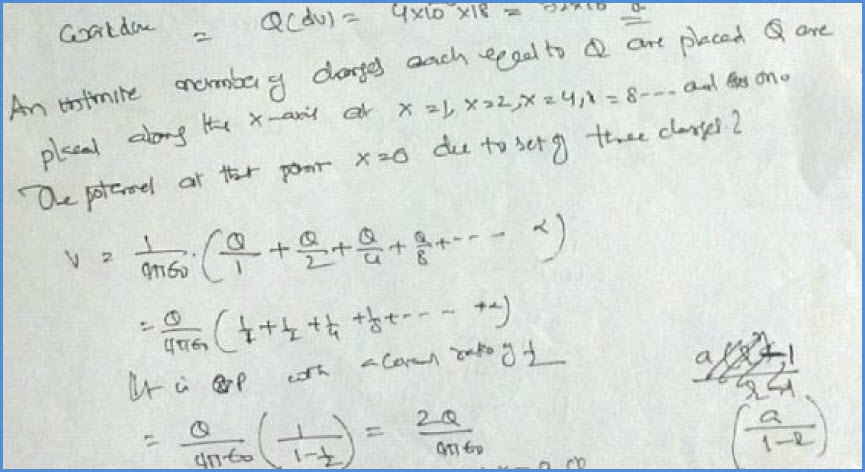 Workdone = Q(dv) = 4×10 ×18 =
An infinite number of charges each equal to Q are placed Q are
placed along the x-axis at x=1, x=2, x=4, x=8---- and so on.
The potential at that point x=0 due to set of these charges?
V = 1/4π∈0 . (Q/1 + Q/2 + Q/4 + Q/8 + ---- ∝)
= Q/4π∈0 (1/1 + 1/2 + 1/4 + 1/8 + ---- +∝)
It is GP with a common ratio of 1/2
= Q/4π∈0 (1/1-1/2) = 2Q/4π∈0
(a/1-r)